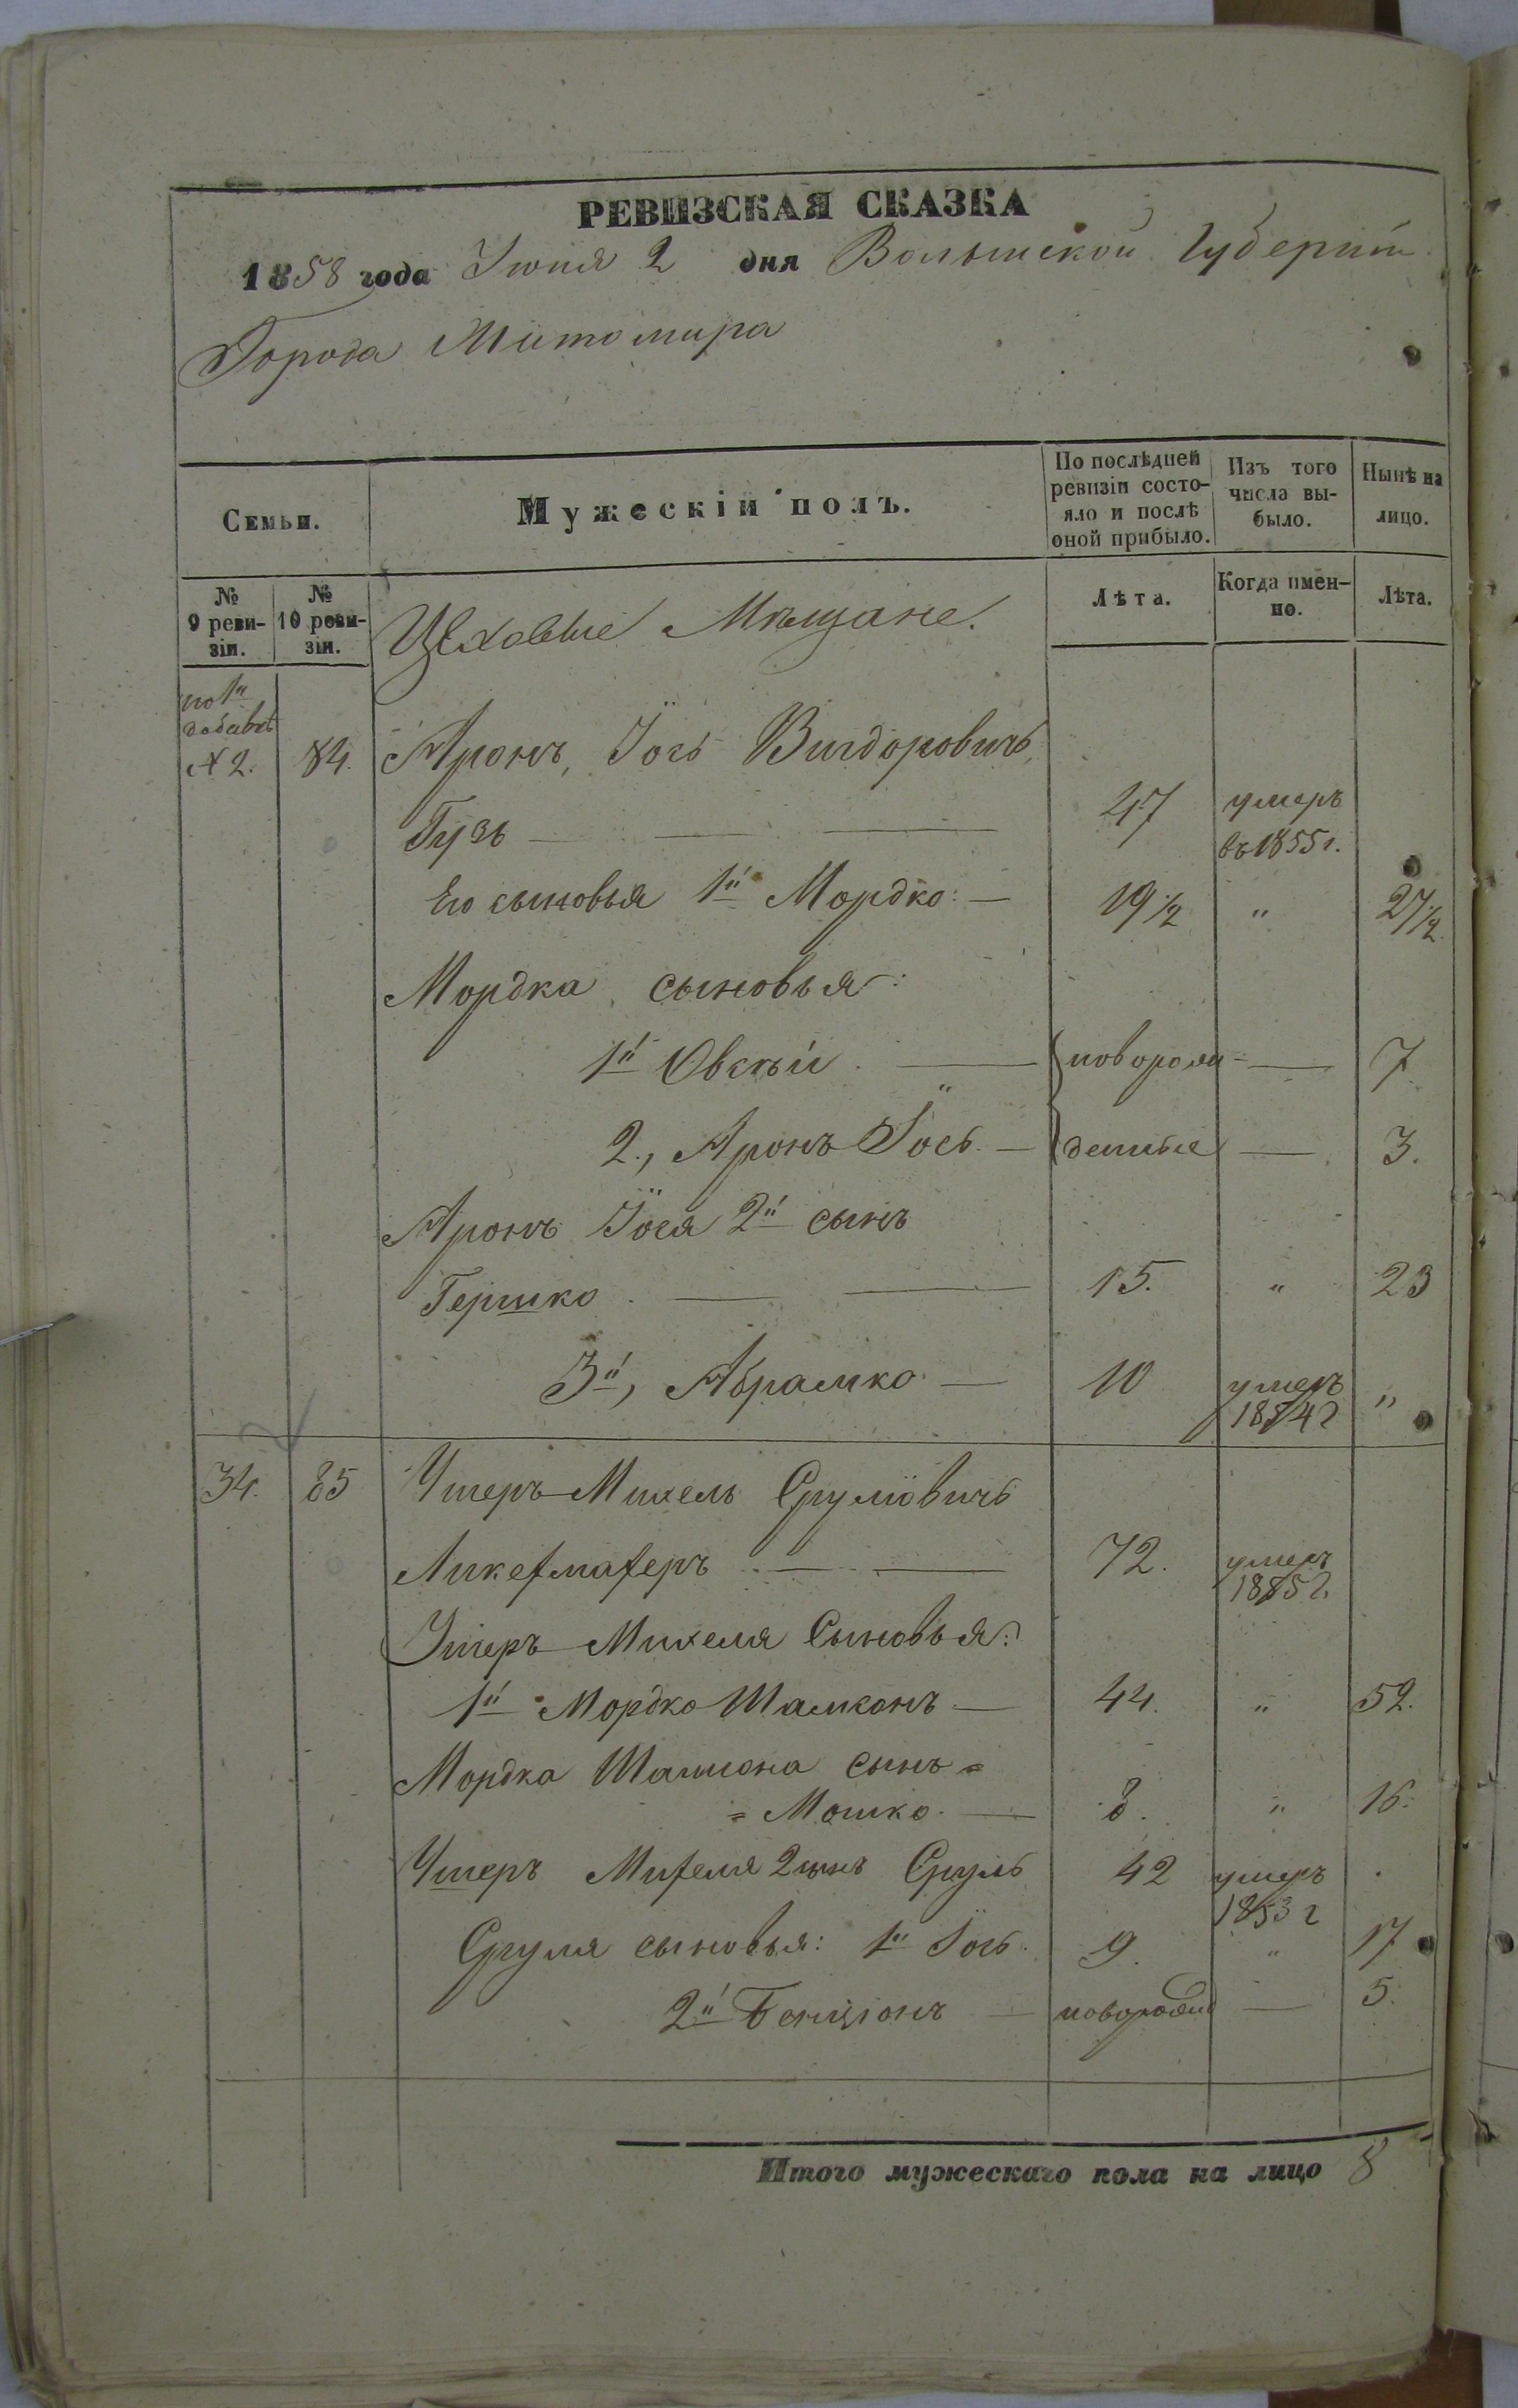 РЕВИЗСКАЯ СКАЗКА
1858 года Іюня 2 дня Волынской Губерніи
Города Житомира
Семьи. Мужескій полъ. По послѣдней ревизіи состояло и послѣ оной прибыло. Изъ того числа выбыло. Нынѣ на лицо.
№ 9 ревизіи. № 10 ревизіи. Цеховые Мѣщане. Лѣта. Когда именно. Лѣта.
по 1й
добавк
N 2. 84. Аронъ Іось Вигдоровичъ
Гузь 47 умеръ въ 1855 г.
Его сыновья 1й Мордко 19 1/2 " 27 1/2
Мордка сыновья:
1й Овсѣй новорож- 7
2, Аронъ Іось денные 3.
Аронъ Іося 2й сынъ
Гершко 15. " 23
3й, Абрамко 10 умеръ 1854 г "
34. 85 Ушеръ Михель Срулiовичъ
72. умеръ 1855 г.
Ушеръ Михеля Сыновья:
1й Мордко Шамсонъ 44. " 52.
Мордка Шамсона сынъ =
= Мошко. 8. " 16.
Ушеръ Михеля 2 сынъ Сруль 42 умеръ 1853 г
Сруля сыновья: 1й Іось 9. " 17
2й Бенціонъ новорожд 5.
Итого мужескаго пола на лицо 8